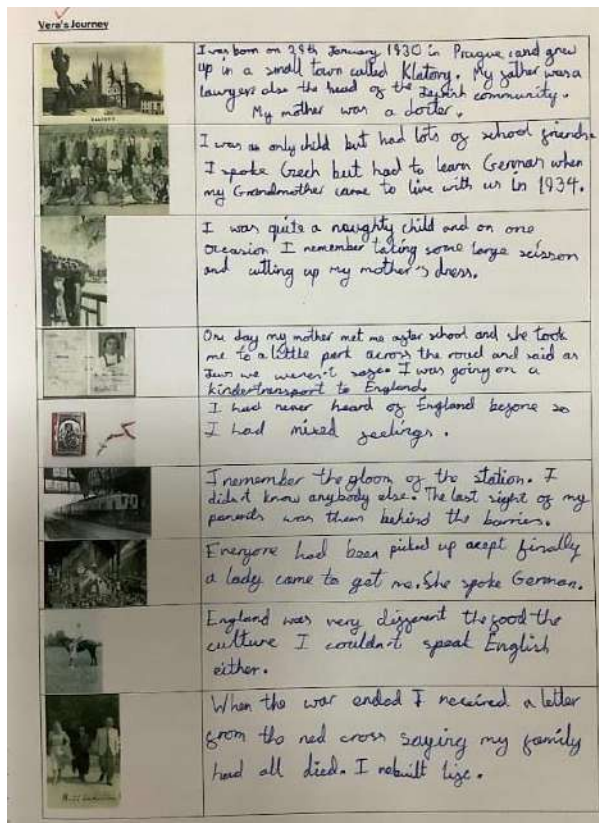 Vera's Journey
I was born on 29th January 1930 in Prague and grew
up in a small town called Klatovy. My father was a
lawyer also the head of the Jewish community.
My mother was a docter.
I was as only child but had lots of school friends.
I spoke Czech but had to learn German when
my Grandmother came to live with us in 1934.
I was quite a naughty child and on one
occasion I remember taking some large scissors
and cutting up my mother's dress.
One day my mother met me after school and she took
me to a little park across the road and said as
Jews we weren't safe. I was going on a
kindertransport to England.
I had never heard of England before so
I had mixed feelings.
I remember the gloom of the station. I
didn't know anybody else. The last sight of my
parents was them behind the barrier.
Everyone had been picked up acept finally
a lady came to get me. She spoke German.
England was very different the food the
culture I couldn't speak English
either.
When the war ended I received a letter
from the red cross saying my family
had all died. I rebuilt life.